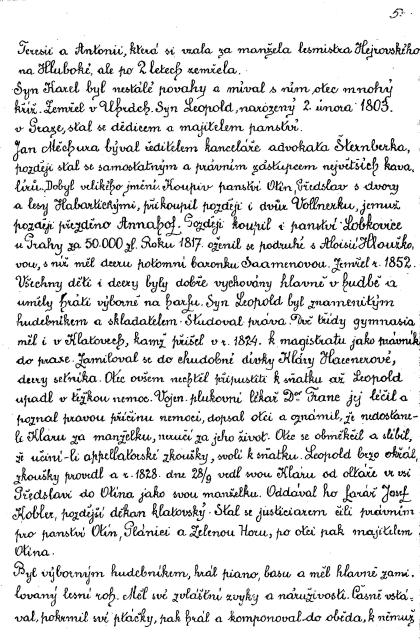 5.
Teresii a Antonii, která si vzala za manžela lesmistra Hejrovského
na Hluboké, ale po 2 letech zemřela.
Syn Karel byl nestálé povahy a míval s ním otec mnohý
kříž. Zemřel v Uhrách. Syn Leopold, narozený 2. února 1803.
v Praze, stal se dědicem a majitelem panství.
Jan Měchura býval ředitelem kanceláře advokáta Šternberka,
později stal se samostatným a právním zástupcem největších kava-
lírů. Dobyl velikého jmění. Koupiv panství Otín, Předslav s dvory
a lesy Habartickými, přikoupil později i dvůr Vollnerku, jemuž
později přezděno Annahof. Později koupil i panství Lobkovice
u Prahy za 50.000 zl. Roku 1817. oženil se podruhé s Aloisií Hlouško-
vou, s níž měl dceru potomní baronku Saamenovou. Zemřel r. 1852.
Všechny děti i dcery byly dobře vychovány hlavně v hudbě a
uměly hráti výborně na harfu. Syn Leopold byl znamenitým
hudebníkem a skladatelem. Studoval práva. Dvě třídy gymnasia
měl i v Klatovech, kamž přišel v r. 1824. k magistrátu jako právník
do praxe. Zamiloval se do chudobné dívky Kláry Hacenerové,
dcery setníka. Otec ovšem nechtěl připustiti k sňatku až Leopold
upadl v těžkou nemoc. Vojen. plukovní lékař Dor Franc jej léčil a
poznal pravou příčinu nemoci, dopsal otci a oznámil, že nedostane-
li Kláru za manželku, neručí za jeho život. Otec se obměkčil a slíbil,
že učiní-li appellátorské zkoušky, svolí k sňatku. Leopold brzo okřál,
zkoušky provedl a r. 1828. dne 28/9 vedl svou Kláru od oltáře ve vsi
Předslavi do Otína jako svou manželku. Oddával ho farář Josef
Kobler, pozdější děkan klatovský. Stal se justiciarem čili právním
pro panství Otín, Plánici a Zelenou Horu, po otci pak majitelem
Otína.
Byl výborným hudebníkem, hrál piano, basu a měl hlavně zami-
lovaný lesní roh. Měl své zvláštní zvyky a náruživosti. Časně vstá-
val, pokrmil své ptáčky, pak hrál a komponoval do oběda, k němuž